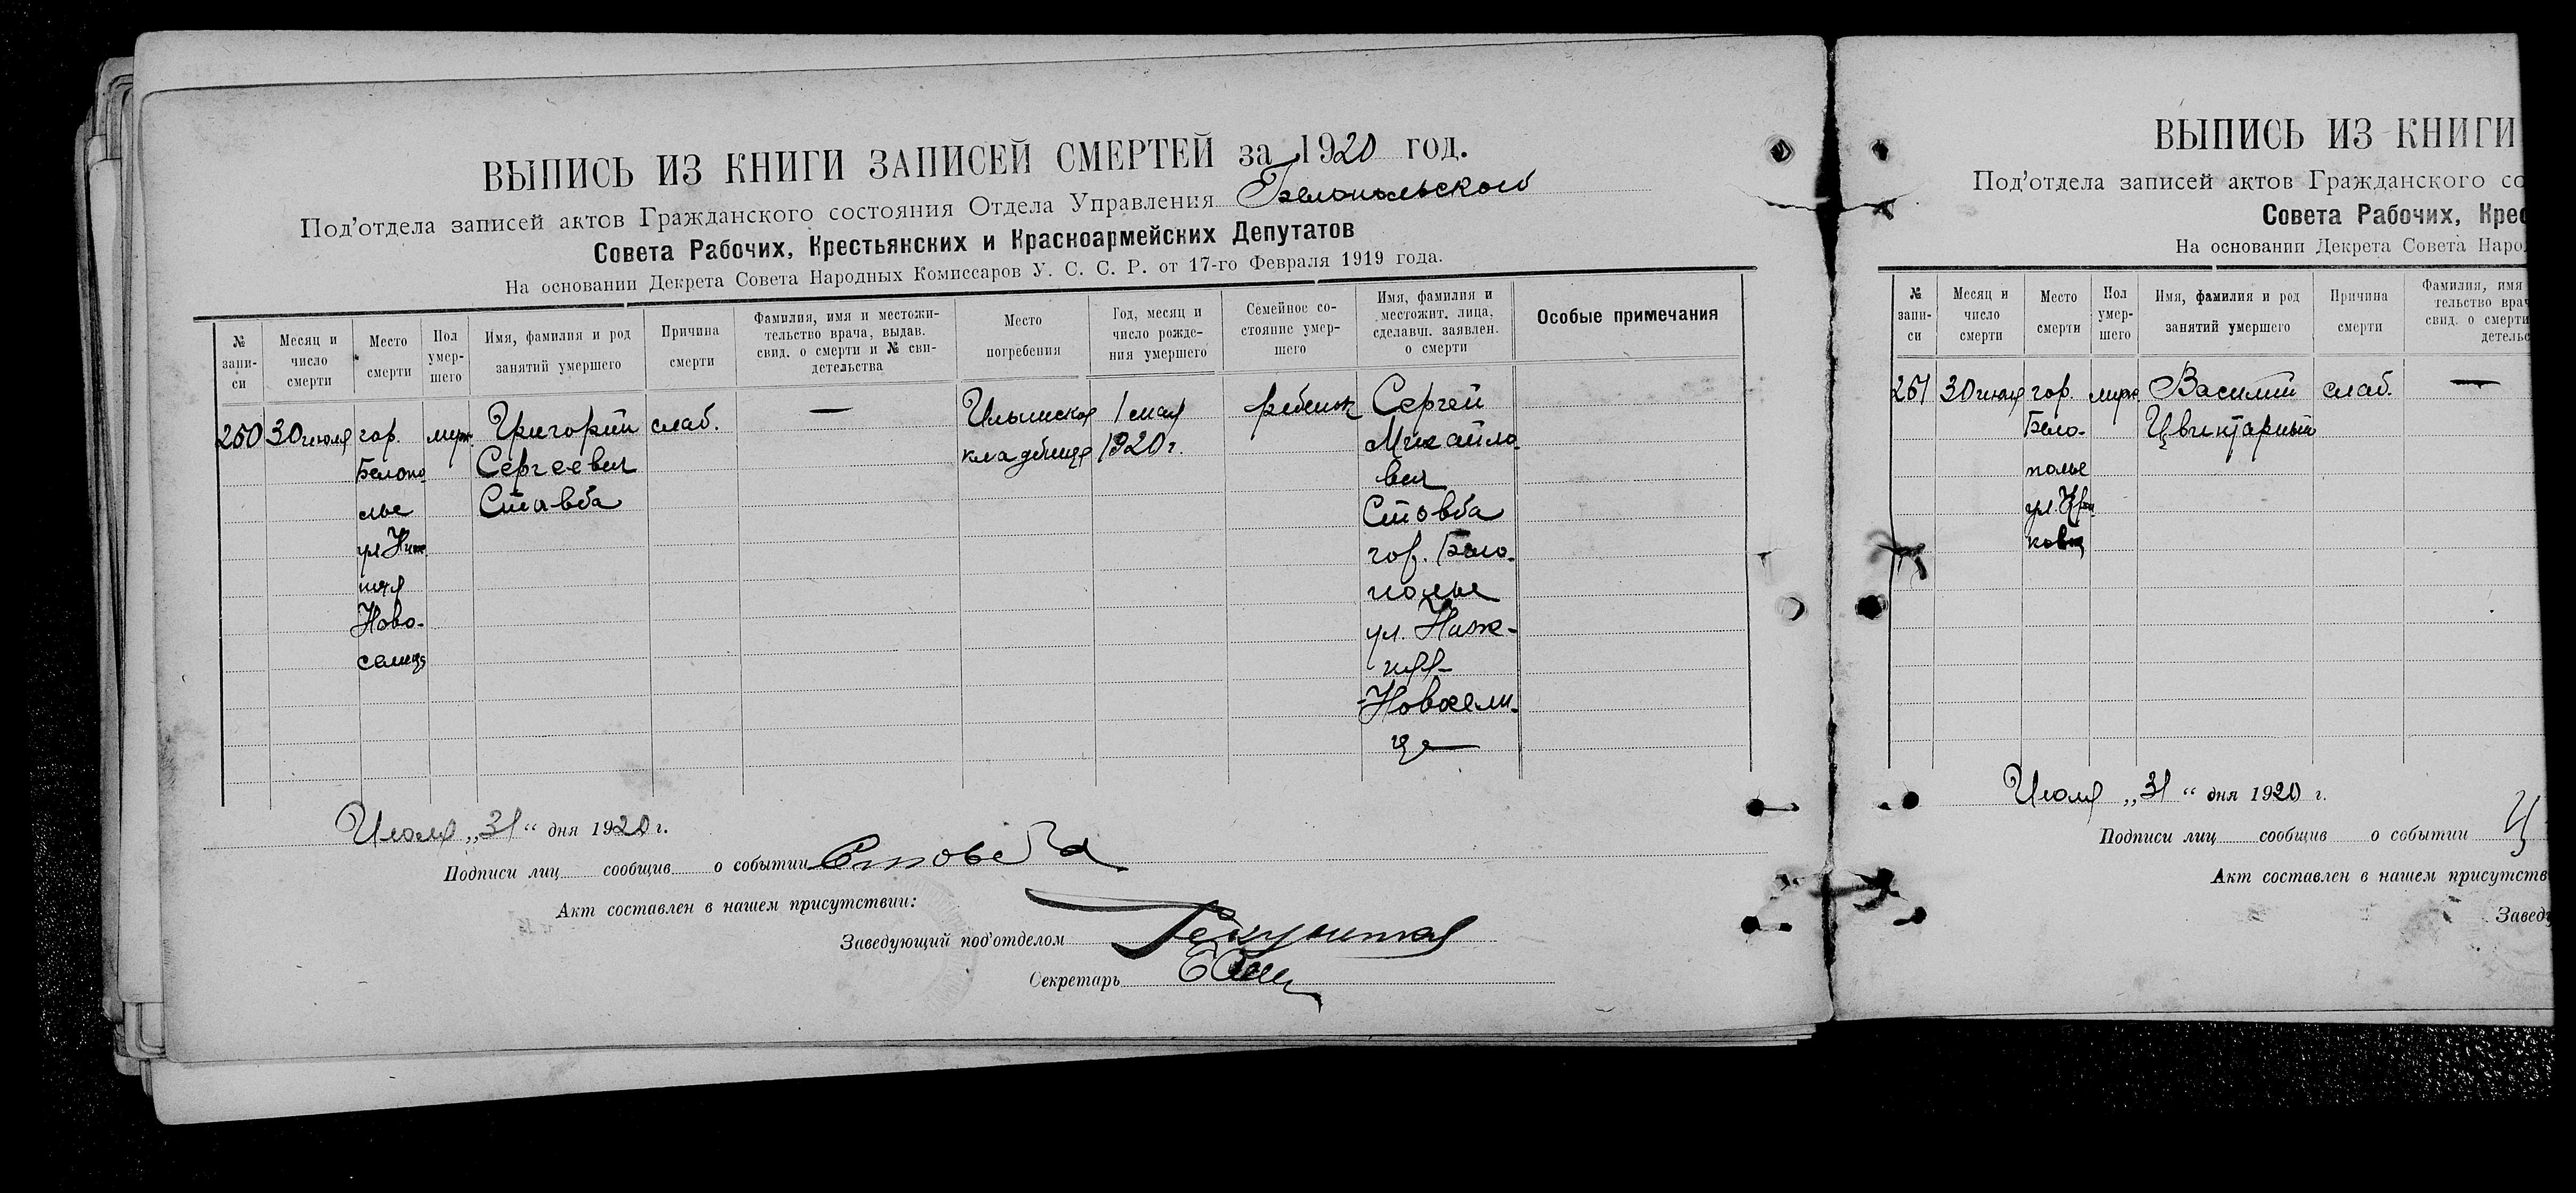 ВЫПИСЬ ИЗ КНИГИ ЗАПИСЕЙ СМЕРТЕЙ за 1920 год.
Под'отдела записей актов Гражданского состояния Отдела Управления Белопольского
Совета Рабочих, Крестьянских и Красноармейских Депутатов
На основании Декрета Совета Народных Комиссаров У. С. С. Р. от 17-го Февраля 1919 года.
№ запи-
си
Месяц и
число
смерти
Место
смерти
Пол
умер-
шего
Имя, фамилия и род
занятий умершего
Причина
смерти
Фамилия, имя и местожи-
тельство врача, выдав.
свид. о смерти и № сви-
детельства
Место
погребения
Год, месяц и
число рожде-
ния умершего
Семейное со-
стояние умер-
шего
Имя, фамилия и
местожит. лица,
сделавш. заявлен.
о смерти
Особые примечания
260
30 июля
гор.
Белопо
лье
ул. Ниж
няя
Ново-
селица
муж.
Григорий
Сергеевич
Стовба
слаб.
—
Ильинское
кладбище
1 мая
1920 г.
ребенок
Сергей
Михайло
вич
Стовба
гор. Бело-
полье
ул. Ниж-
няя-
Новосели-
ца
Июля „31“ дня 1920 г.
Подписи лиц сообщив о событии Стовба
Акт составлен в нашем присутствии:
Заведующий под'отделом
Секретарь
ВЫПИСЬ ИЗ КНИГИ
Под'отдела записей актов Гражданского со
Совета Рабочих, Крес
На основании Декрета Совета Народ
№
запи-
си
Месяц и
число
смерти
Место
смерти
Пол
умер-
шего
Имя, фамилия и род
занятий умершего
Причина
смерти
Фамилия, имя
тельство врач
свид. о смерти
детельс
261
30 июля
гор.
Бело-
полье
ул.
муж.
Василий
Цвинтарный
слаб.
—
Июля „31“ дня 1920 г.
Подписи лиц сообщив о событии Ц
Акт составлен в нашем присутств
Завед